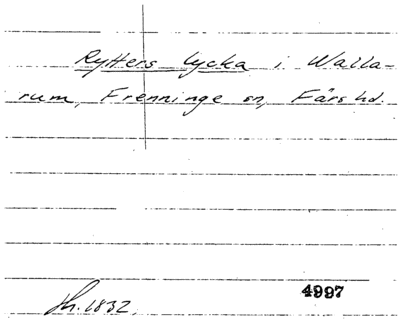 Rytters lycka i Walla-
rum, Frenninge sn, Färs hd.
h. 1832.
4997